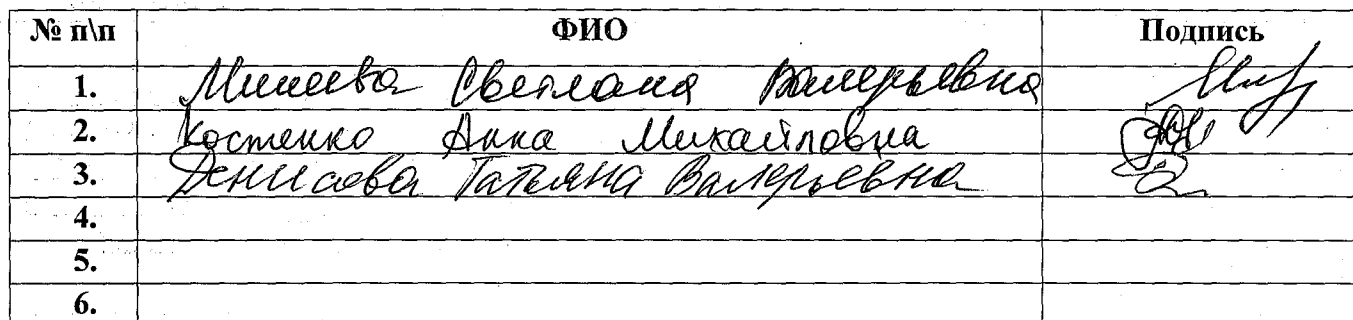 № п\п ФИО Подпись
1. Светлана Валерьевна
2. Костенко Анна Михайловна
3. Денисова Татьяна Валерьевна
4.
5.
6.